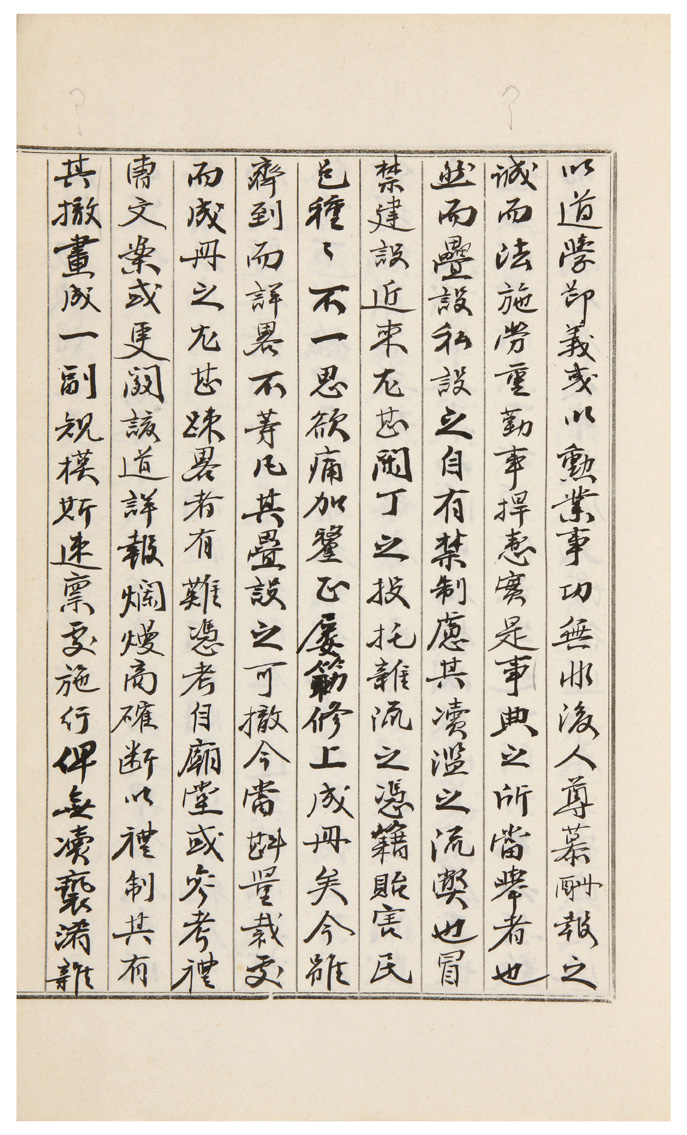 以道學節義或以勳業事功無非後人尊慕酬報之
誠而法施勞重勤事捍患寔是事典之所當擧者也
然而疊設私設之自有禁制慮其瀆濫之流獘也冒
禁建設近來尤甚閑丁之投托雜流之憑籍貽害民
邑種〻不一思欲痛加釐正屢飭修上成冊矣今雖
齊到而詳畧不等凡其疊設之可撤今當斟量裁處
而成冊之尤甚踈畧者有難憑考自廟堂或參考禮
曹文案或更關該道詳報爛熳商確斷以禮制其有
其撤畫成一副規模斯速稟處施行俾無瀆褻淆雜